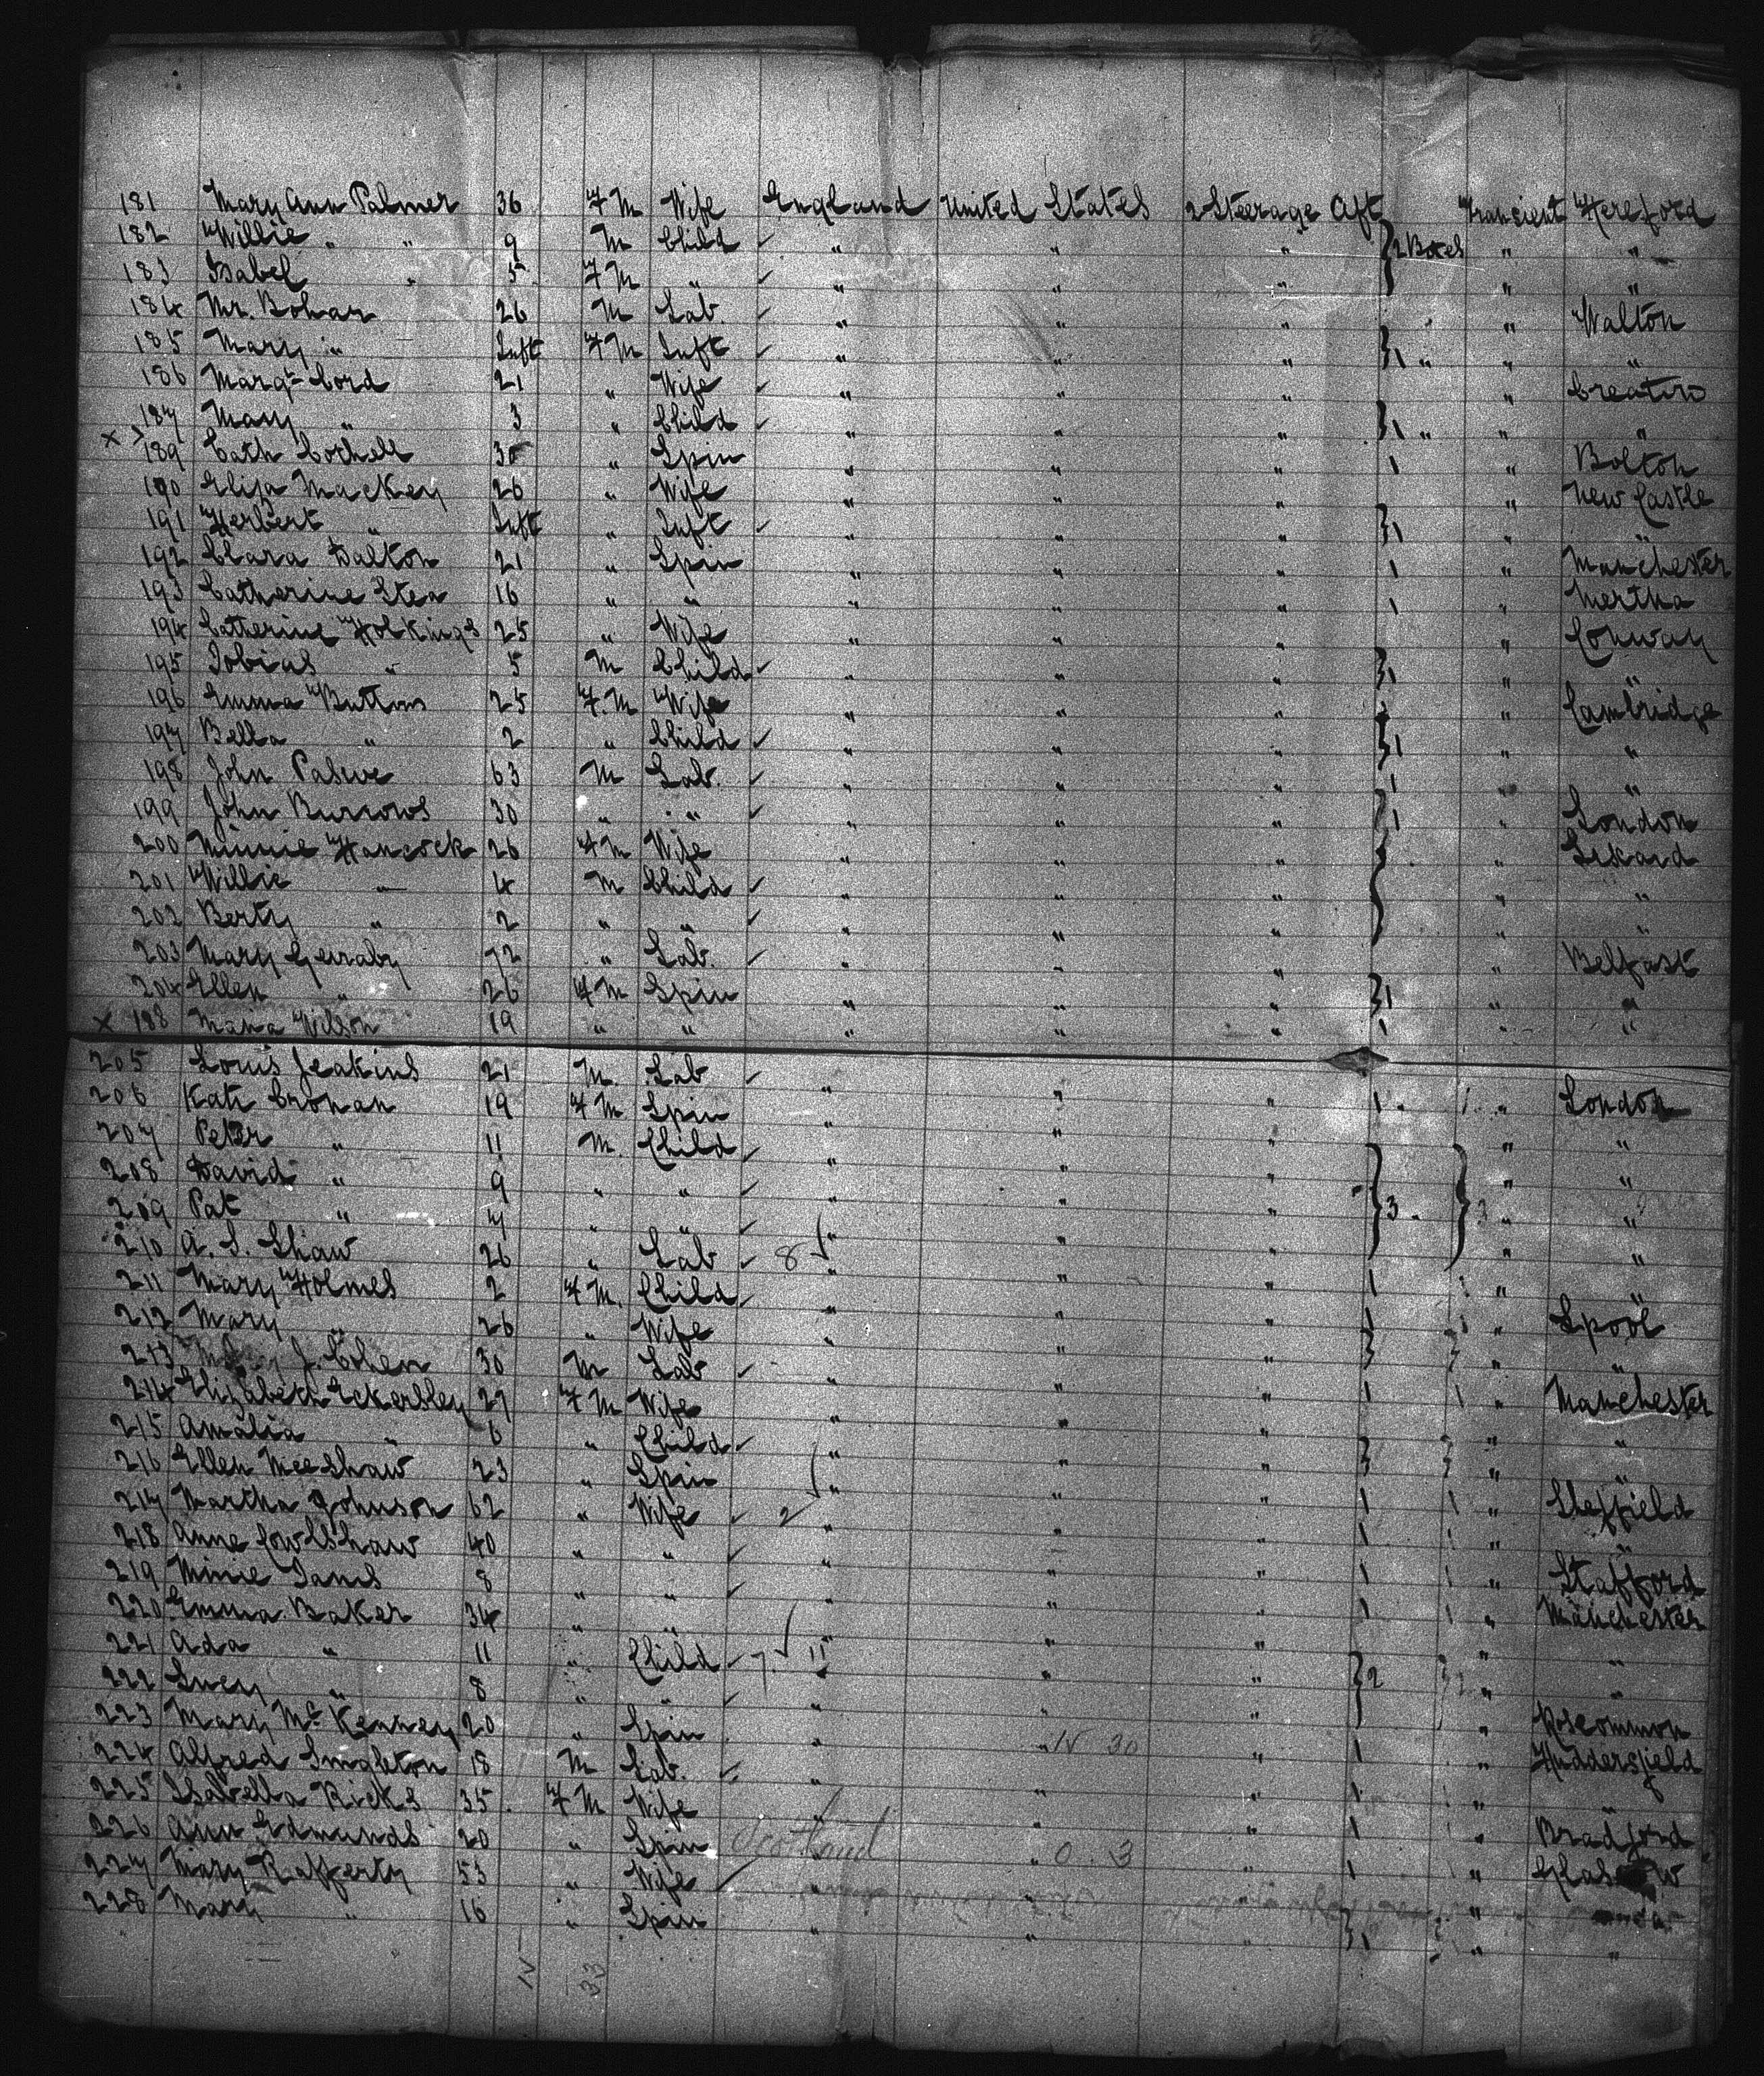 181 Mary Ann Palmer 36 F M Wife England United States 2 Steerage Aft Transient Hereford
182 Willie " " 9 M Child ✓ " " " } 2 Boxes " "
183 Isabel " 5 F M " ✓ " " " " "
184 Mr. Bohan 26 M Lab. ✓ " " " " Walton
185 Mary " Inft F M Inft ✓ " " " } 1 " " "
186 Margt Cord 21 " Wife ✓ " " " "
187 Mary " 3 " Child ✓ " " " } 1 " " "
x 189 Cath 30 " Spin " " " 1 " Bolton
190 Eliza Mackey 26 " Wife " " " " New Castle
191 Herbert " Inft " Inft ✓ " " " } 1 " "
192 Clara Dalton 21 " Spin " " " 1 " Manchester
193 Catherine Stea 16 " " " " " 1 " Mertha
194 Catherine Hoskings 25 " Wife " " " " Conway
195 Tobias " 5 M Child ✓ " " " } 1 " "
196 Emma Buttons 25 F. M Wife " " " " Cambridge
197 Bella " 2 " Child ✓ " " " } 1 " "
198 John 63 M Lab. ✓ " " " 1 " "
199 John Burrows 30 " " ✓ " " " 1 " London
200 Minnie Hancock 26 F M Wife " " " " Liskard
201 Willie " 4 M Child ✓ " " " } " "
202 Berty " 2 " " ✓ " " " " "
203 Mary Gerraby 72 " Lab. ✓ " " " " Belfast
204 Ellen " 26 F M Spin " " " } 1 " "
x 188 Maria Wilson 19 " " " " " 1 " "
205 Louis Jeakins 21 M. Lab ✓ " " " 1 " London
206 Kate Cronan 19 F M Spin " " " " "
207 Peter " 11 M. Child ✓ " " " " "
208 David " 9 " " ✓ " " " } 3 } 3 " "
209 Pat " 7 " " ✓ " " " " "
210 A. S. Shaw 26 " Lab ✓ 8 ✓ " " " 1 " "
211 Mary Holmes 2 F M. Child ✓ " " " 1 " Lpool
212 Mary " 26 " Wife " " " } } " "
213 J. Cohen 30 M Lab ✓ " " " 1 1 " Manchester
214 Elizabeth Eckersley 27 F M Wife " " " " "
215 Amalia " 6 " Child ✓ " " " } } " "
216 Ellen Mee Shaw 23 " Spin " " " 1 1 " Sheffield
217 Martha Johnson 62 " Wife ✓ 2 ✓ " " " 1 " "
218 Anne Cowlshaw 40 " " ✓ " " " 1 1 " Stafford
219 Minie 8 " " ✓ " " " 1 1 " Manchester
220 Emma Baker 34 " " " " " " "
221 Ada " 11 " Child ✓ 7 ✓ 11 " " " } 2 } 2 " "
222 Lucy " 8 " " ✓ " " " " Roscommon
223 Mary Mc Kenney 20 " Spin " " 30 " 1 " Huddersfield
224 Alfred Singleton 18 M Lab. ✓ " " " 1 " "
225 Isabella Ricks 35 F M Wife " " " 1 " Bradford
226 Ann Edmunds 20 " Spin Scotland " " 0 3 " 1 "
227 Mary Rafferty 53 " Wife ✓ " " " "
228 Mary " 16 " Spin " " " } 1 " "
33